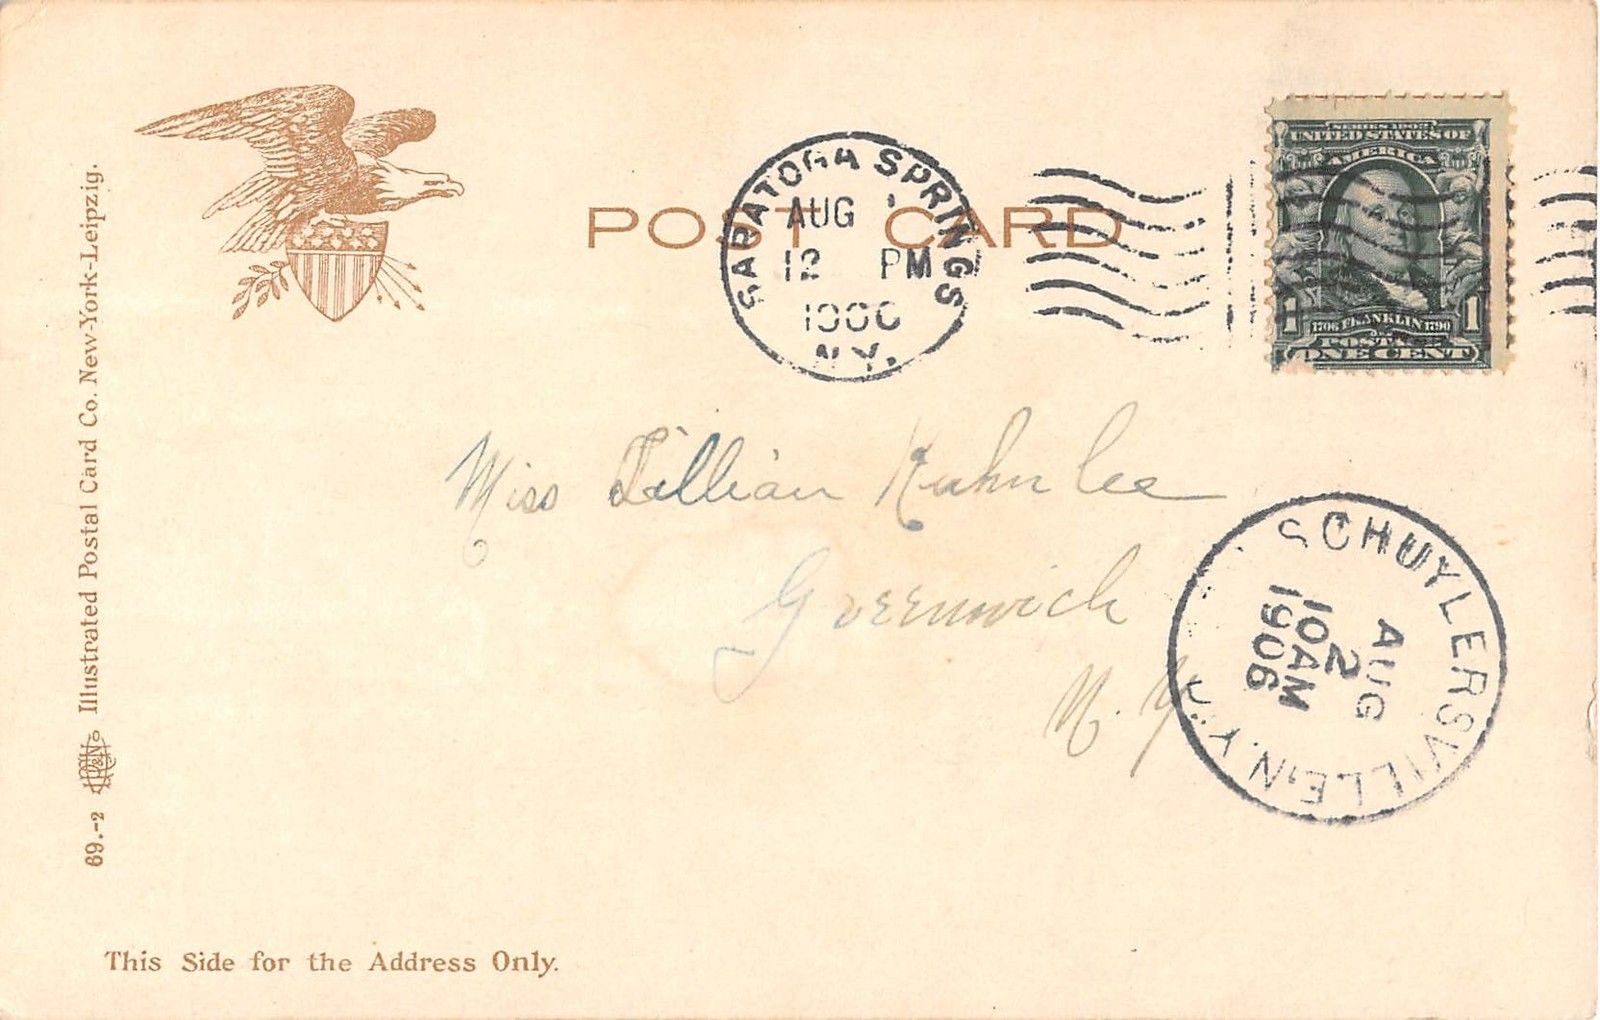 Illustrated Postal Card Co. New-York-Leipzig.
69.-2
POST CARD
SARATOGA SPRINGS
AUG
12 PM
1906
N.Y.
SERIES 1902
UNITED STATES OF
AMERICA
1 1706 FRANKLIN 1790 1
POSTAGE
ONE CENT
Miss Lillian Kuhn Lee
Greenwich
N. Y.
SCHUYLERSVILLE, N.Y.
AUG
2
10AM
1906
This Side for the Address Only.